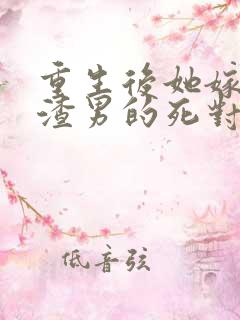 重生後她嫁
渣男的死對
低音弦